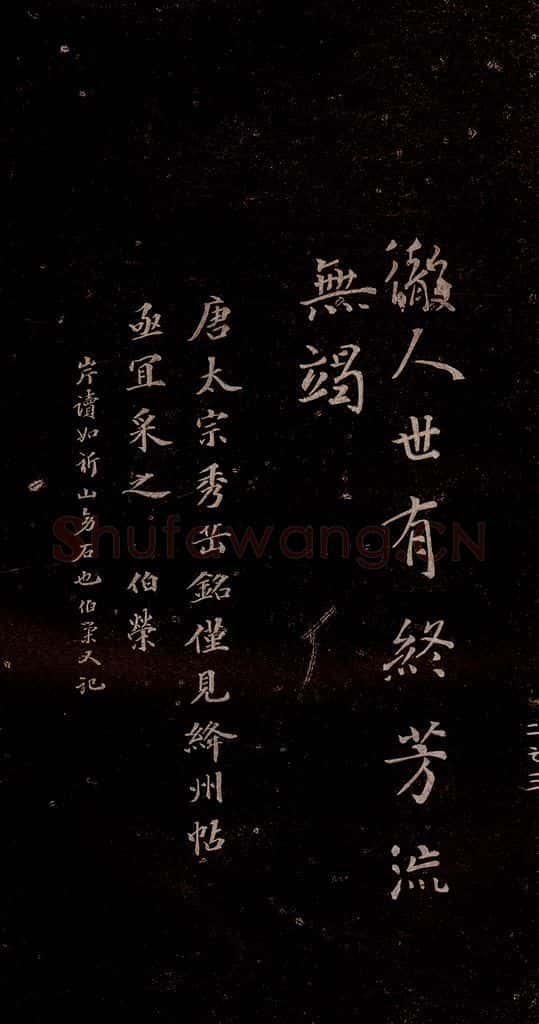 人世有終芳流
無竭
唐太宗秀岳銘僅見絳州帖
亟冝采之 伯榮
讀如祈山旁石也伯榮又記
Shufawang.CN